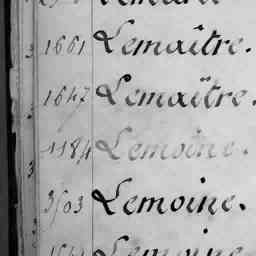 1661 Lemaître.
1647 Lemaître.
1184 Lemoine.
3503 Lemoine.
Lemoine